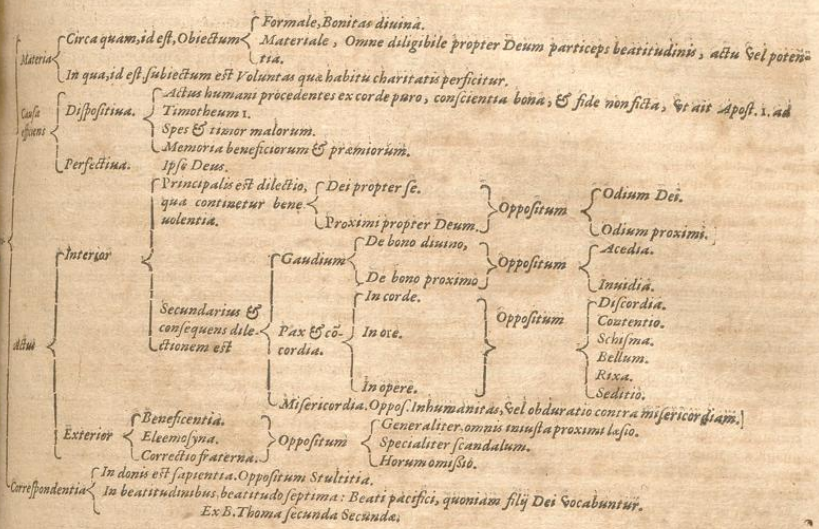 Formale, Bonitas diuina.
Circa quam, id est, Obiectum
Materiale, Omne diligibile propter Deum particeps beatitudinis, actu vel poten-
tia.
Materia
In qua, id est, subiectum est Voluntas quæ habitu charitatis perficitur.
Actus humani procedentes ex corde puro, conscientia bona, & fide non ficta, vt ait Apost. 1. ad
Timotheum 1.
Causa
efficiens
Dispositiua.
Spes & timor malorum.
Memoria beneficiorum & præmiorum.
Perfectiua. Ipse Deus.
Principalis est dilectio,
qua continetur bene
uolentia.
Dei propter se.
Proximi propter Deum.
Oppositum
Odium Dei.
Odium proximi.
Interior
Gaudium
De bono diuino,
De bono proximo
Oppositum
Acedia.
Inuidia.
Secundarius &
consequens dile-
ctionem est
Pax & cō-
cordia.
In corde.
In ore.
In opere.
Oppositum
Discordia.
Contentio.
Schisma.
Bellum.
Rixa.
Seditio.
Actus
Misericordia. Oppos. Inhumanitas, vel obduratio contra misericordiam.
Exterior
Beneficentia.
Eleemosyna.
Correctio fraterna.
Oppositum
Generaliter, omnis iniusta proximi læsio.
Specialiter scandalum.
Horum omissio.
Correspondentia
In donis est sapientia. Oppositum Stultitia.
In beatitudinibus, beatitudo septima: Beati pacifici, quoniam filij Dei vocabuntur.
Ex B. Thoma secunda Secundæ.